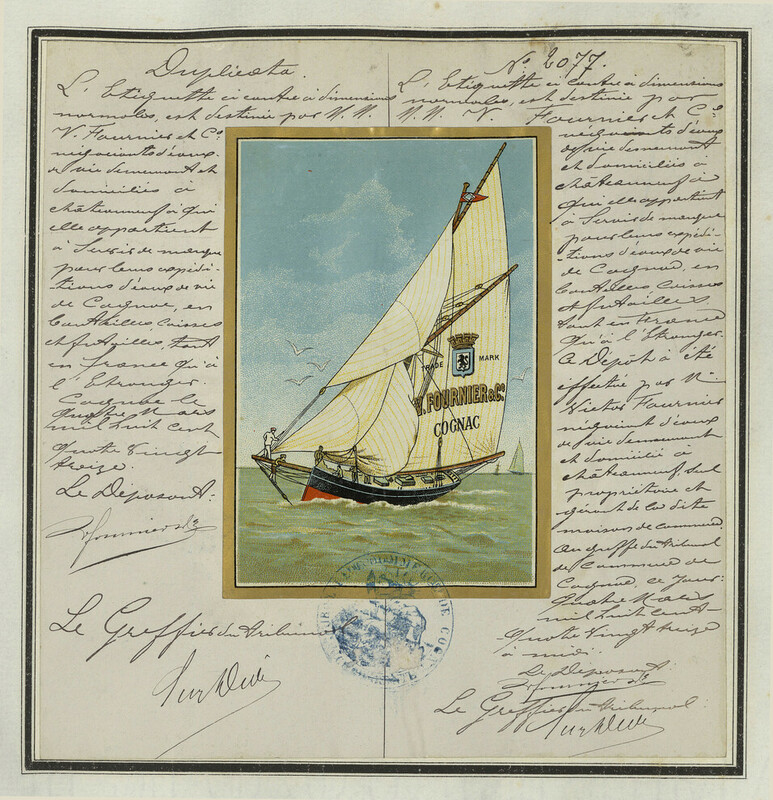 Duplicata.
L'Etiquette ci contre à dimensions
normales, est destinée par M.M.
V. Fournier et Cº
négociants d'eaux
de vie demeurant et
domiciliés à
châteauneuf à qui
elle appartient
à Servir de marque
pour leurs expédi-
tions d'eaux de vie
de Cognac, en
bouteilles, caisses
et futailles, tant
en france qu'à
l'Etranger.
Cognac le
quatre Mars
mil huit cent
quatre vingt
treize.
Le Déposant:
Le Greffier du tribunal
Nº 2077.
L'Etiquette ci contre à dimensions
normales, est destinée par
M.M. V. Fournier et Cº
négociants d'eaux
de vie demeurant
et domiciliés à
châteauneuf à
qui elle appartient
à Servir de marque
pour leurs expédi-
tions d'eaux de vie
de Cognac, en
bouteilles, caisses
et futailles,
tant en France
qu'à l'Etranger.
Ce Dépôt à été
effectué par M
Victor Fournier
négociant d'eaux
de vie demeurant
et domicilié à
châteauneuf, seul
propriétaire et
gérant de la dite
maison de commerce
au greffe du tribunal
de Commerce de
Cognac, ce jour
quatre Mars
mil huit cent
quatre vingt treize
à midi.
Le Déposant:
Le Greffier du tribunal:
TRADE MARK
V. FOURNIER & Cº
COGNAC